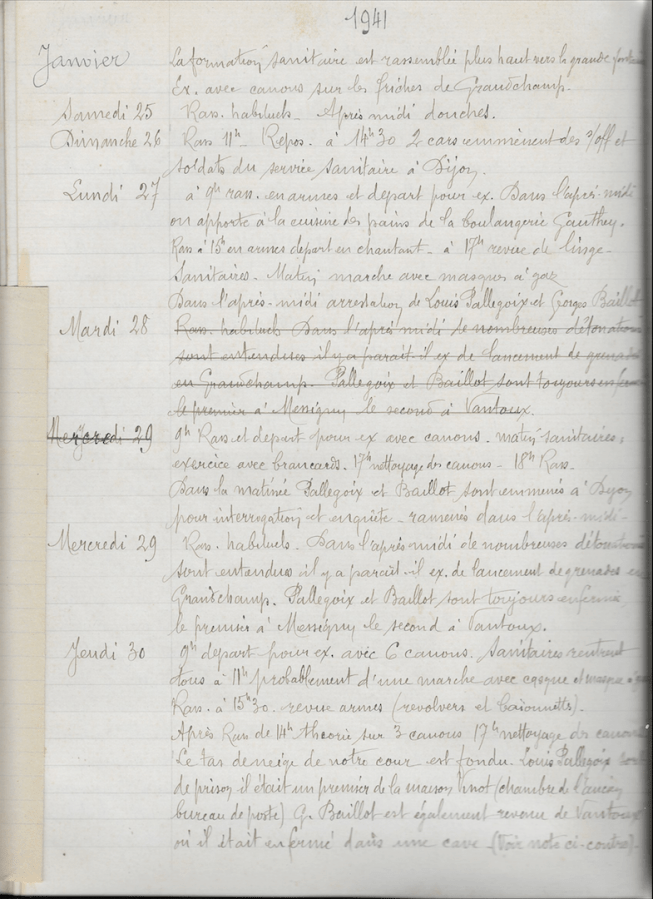 1941
Janvier La formation sanitaire est rassemblée plus haut vers la grande
Ex. avec canons sur les friches de Grandchamp.
Samedi 25 Rass. habituels - Après midi douches.
Dimanche 26 Rass 11h - Repos. à 14h30 2 cars emmènent des s/off et
soldats du service sanitaire à Dijon.
Lundi 27 à 9h rass. en armes et départ pour ex. Dans l'après-midi
on apporte à la cuisine des pains de la boulangerie Gauthey.
Rass à 15h en armes départ en chantant - à 17h revue de linge -
Sanitaires - Matin marche avec masques à gaz
Dans l'après-midi arrestation de Louis Pallegoix et Georges Baillot
Mardi 28 Rass. habituels Dans l'après midi de nombreuses détonations
sont entendues il y a parait-il ex de lancement de grenades
en Grandchamp. Pallegoix et Baillot sont toujours
le premier à Messigny le second à Vantoux.
Mercredi 29 9h Rass et départ pour ex avec canons. matin sanitaires:
exercice avec brancards. 17h nettoyage des canons - 18h Rass.
Dans la matinée Pallegoix et Baillot sont emmenés à Dijon
pour interrogation et enquête - ramenés dans l'après-midi -
Mercredi 29 Rass. habituels - Dans l'après midi de nombreuses détonations
sont entendues il y a paraît-il ex. de lancement de grenades en
Grandchamp. Pallegoix et Baillot sont toujours enfermés
le premier à Messigny le second à Vantoux.
Jeudi 30 9h départ pour ex. avec 6 canons. Sanitaires rentrent
tous à 11h probablement d'une marche avec casque et masque à
Rass. à 15h30. revue armes (revolvers et baïonnettes).
Après Rass de 14h théorie sur 3 canons 17h nettoyage des canons
Le tas de neige de notre cour est fondu. Louis Pallegoix sort
de prison il était un premier de la maison Vinot (chambre de l'ancien
bureau de poste) G. Baillot est également revenu de Vantoux
où il était enfermé dans une cave - (Voir note ci-contre).